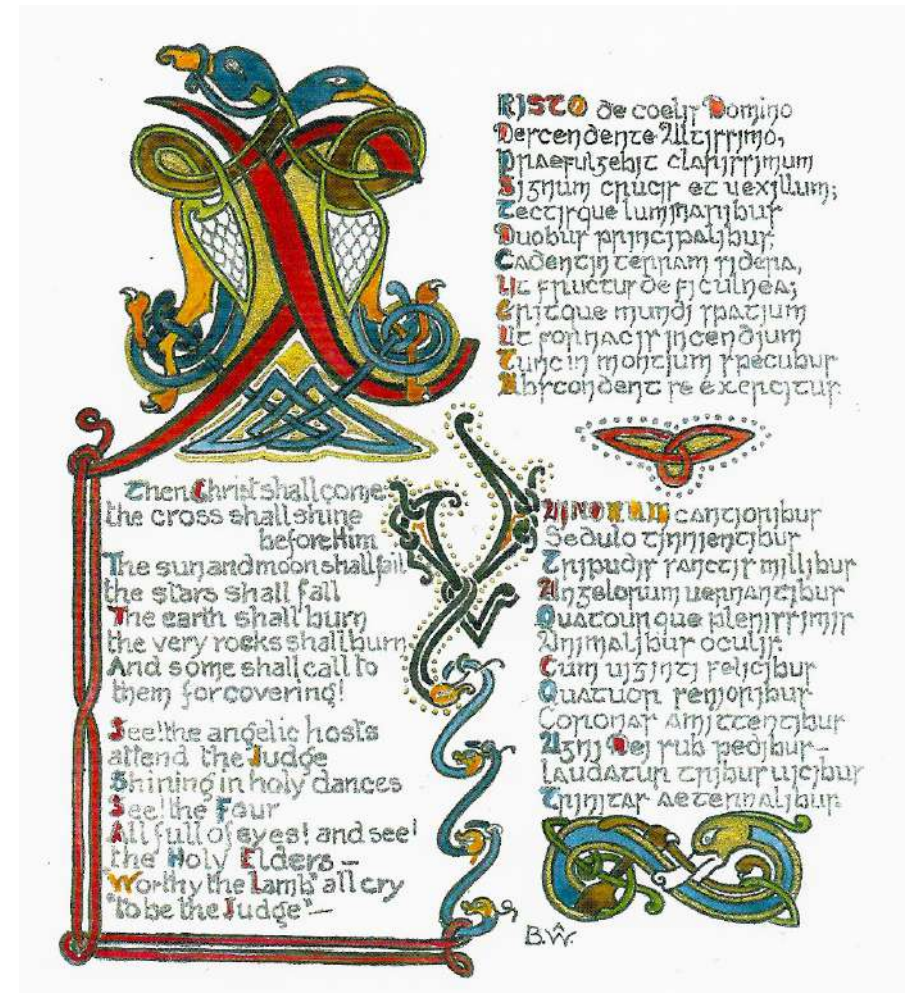 XRISTO de coelis Domino
Descendente Altissimo,
Praefulgebit clarissimum
Signum crucis et uexillum;
Tectisque luminaribus
Duobus principalibus,
Cadent in terram sidera,
Ut fructus de ficulnea;
Eritque mundi spatium
Ut fornacis incendium
Tunc in montium specubus
Abscondent se exercitus.
Then Christ shall come:
the cross shall shine
before Him
The sun and moon shall fail
the stars shall fall
The earth shall burn
the very rocks shall burn
And some shall call to
them for covering!
See! the angelic hosts
attend the Judge
Shining in holy dances
See! the Four
All full of eyes! and see!
the Holy Elders –
"Worthy the Lamb" all cry
"to be the Judge" –
YMNORUM cantionibus
Sedulo tinnientibus
Tripudis sanctis millibus
Angelorum uernantibus
Quatourque plenissimis
Animalibus oculis.
Cum uiginti felicibus
Quatuor senioribus
Coronas amittentibus
Agni Dei sub pedibus –
Laudatur tribus uicibus
Trinitas aeternalibus
B.W.